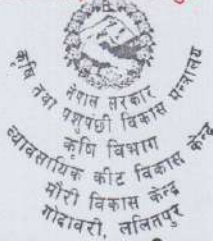 नेपाल सरकार
कृषि तथा पशुपंछी विकास मन्त्रालय
कृषि विभाग
व्यावसायिक कीट विकास केन्द्र
मौरी विकास केन्द्र
गोदावरी, ललितपुर